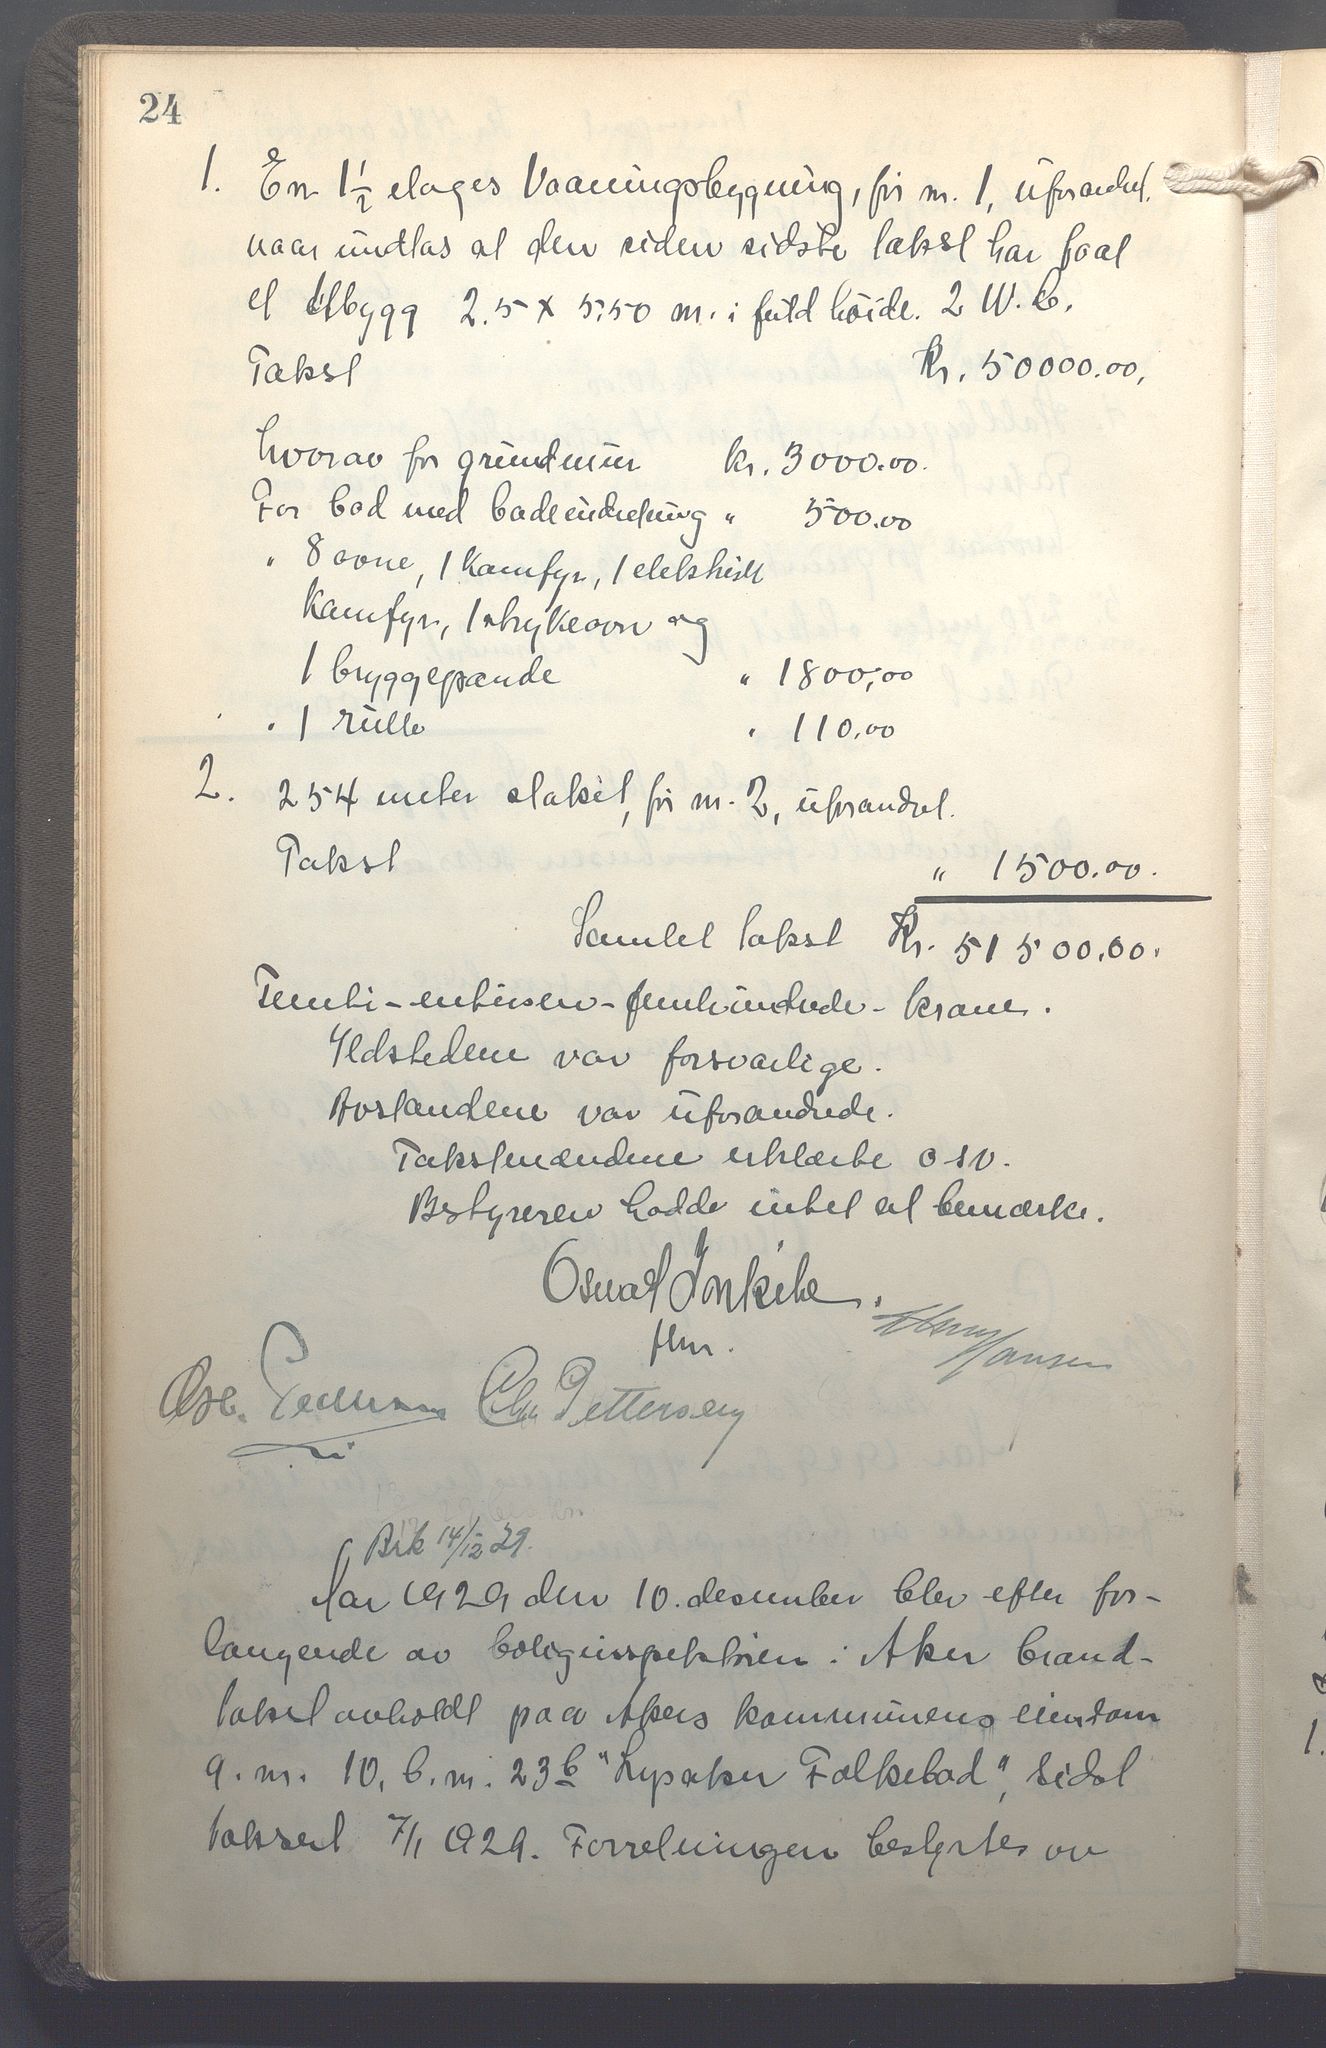 24
1. En 1½ etages Vaaningsbygning, før nr. 1, uforandret.
naar undtas at den siden sidste takst har faat
et utbygg 2.5 x 5.50 m. i fuld høide. 2 W.C.
Takst Kr. 50000.00,
hvorav for grundmur kr. 3000.00.
For bad med badeindretning " 500.00
" 8 ovne, 1 Kamfyr, 1 elektrisk
Kamfyr, 1 strykeovn og
1 bryggepande " 1800,00
" 1 rulle " 110.00
2. 254 meter stakit, før nr. 2, uforandret.
Takst " 1500.00.
Samlet takst Kr. 51500.00.
Femti-entusen-femhundrede-kroner.
Ildstedene var forsvarlige.
Avstandene var uforandrede.
Takstmændene erklærte osv.
Bestyreren hadde intet at bemærke.
Osvald
fm.
Hansen
Osc. Pedersen Chr Pettersen
Brk 14/12 29.
Aar 1929 den 10. desember blev efter for-
langende av boliginspektøren i Aker brand-
takst avholdt paa Akers kommunens eiendom
g. nr. 10, b. nr. 23b "Lysaker Folkebad", sidst
taksert 7/1 1929. Forretningen bestyrtes av